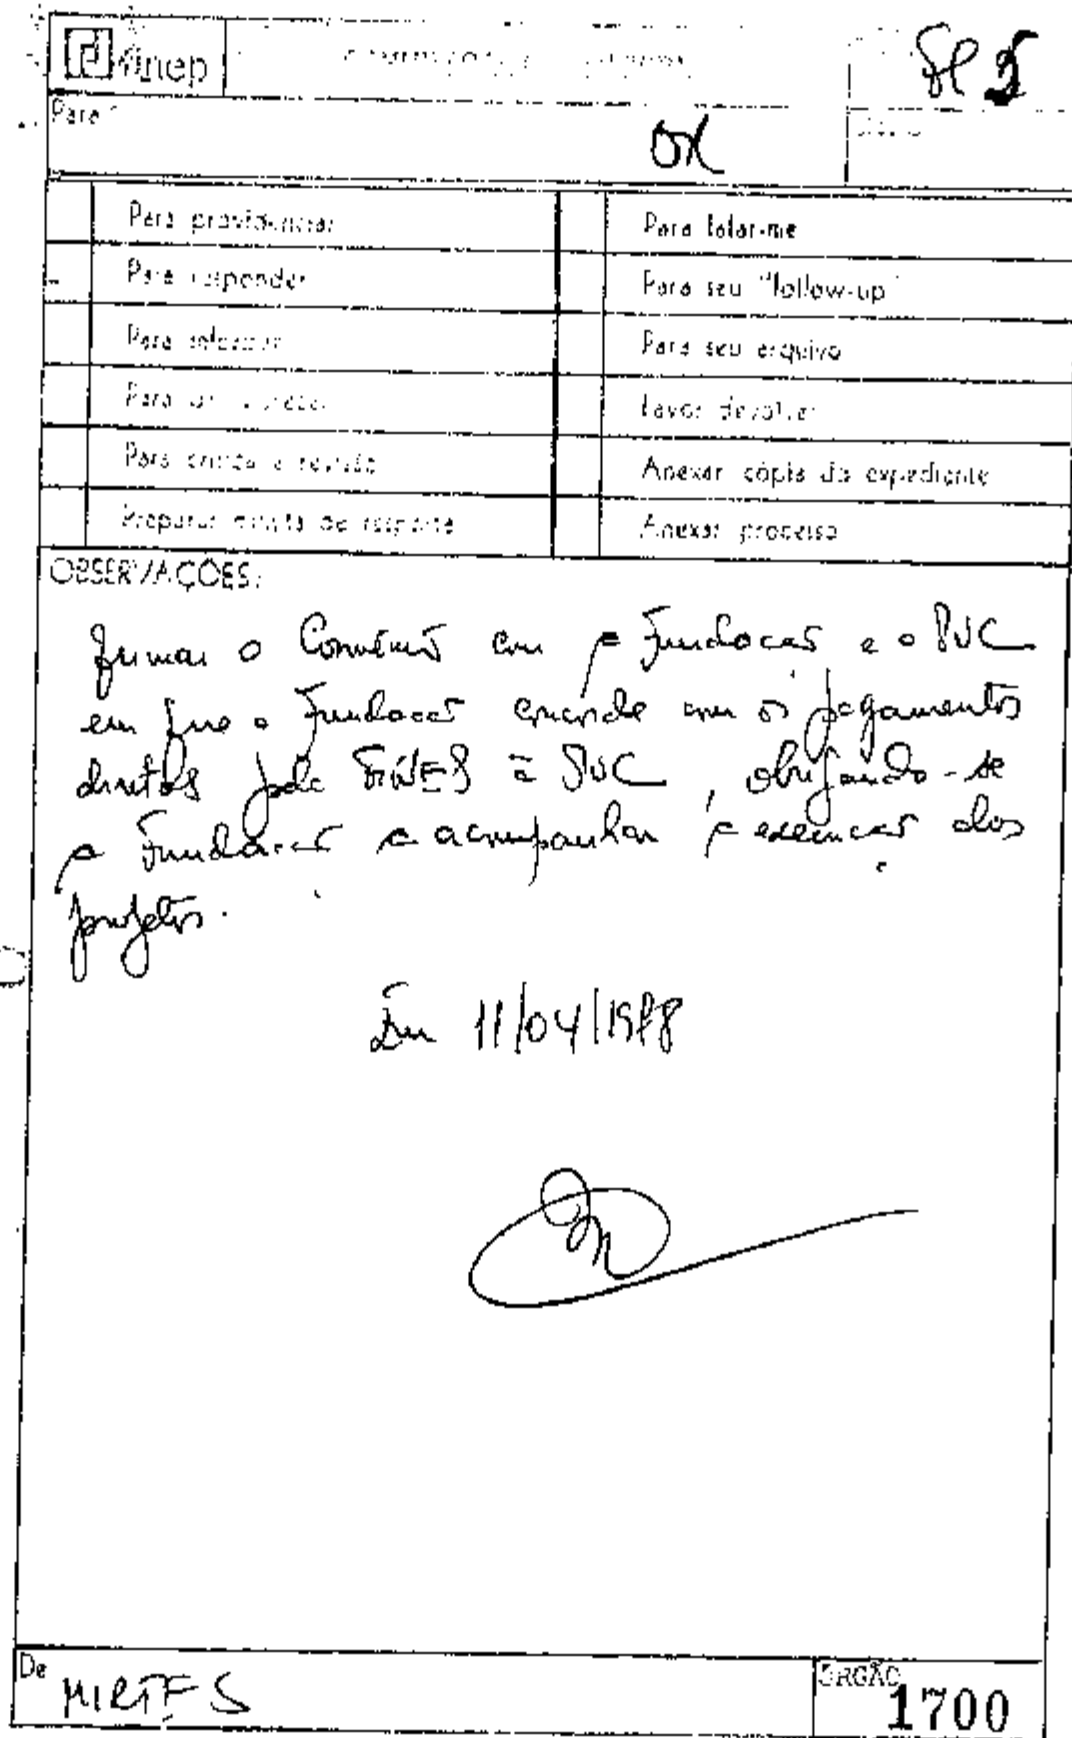 finep
Para
OK
Para providenciar
Para falar-me
Para responder
Para seu "follow-up"
Para informar
Para seu arquivo
Para
Favor devolver
Para crítica e revisão
Anexar cópia do expediente
Preparar minuta de resposta
Anexar processo
OBSERVAÇÕES:
Firmar o Convênio com a Fundação e a PUC
em que a Fundação concorde com os pagamentos
diretos pela FINEP à PUC, obrigando-se
a Fundação a acompanhar a execução dos
projetos.
Em 11/04/1988
De
MIRTES
ÓRGÃO
1700